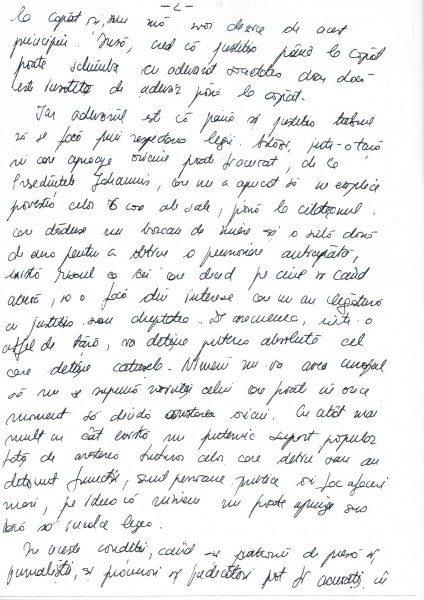 - 2 -
la capăt și, nu mă voi dezice de acest
principiu. Însă, cred că justiția până la capăt
poate schimba cu adevărat societatea doar dacă
este însoțită de adevăr până la capăt.
Iar adevărul est că până și justiția trebuie
să se facă prin respectarea legii. Astăzi, într-o țară
în care aproape oricine poate fi acuzat, de la
Președintele Iohannis, care nu a apucat să ne explice
povestea celor 6 case ale sale, până la cetățeanul
care dăduse un borcan de miere și o sută două
de euro pentru a obține o pensionare anticipată,
există riscul ca cei care decid pe cine și când
acuză, să o facă din interese care nu au legătură
cu justiția sau dreptatea. În consecință, într-o
astfel de țară, va deține puterea absolută cel
care deține cătușele. Nimeni nu va avea curajul
să nu se supună voinței celui care poate în orice
moment să decidă arestarea oricui. Cu atât mai
mult cu cât există un puternic suport popular
față de arestarea tuturor celor care dețin sau au
deținut funcții, sunt persoane publice ori fac afaceri
mari, pe ideea că nimeni nu poate ajunge sus
fără să încalce legea.
În aceste condiții, când și patronii de presă și
jurnaliștii, și procurorii și judecătorii pot fi acuzați, în